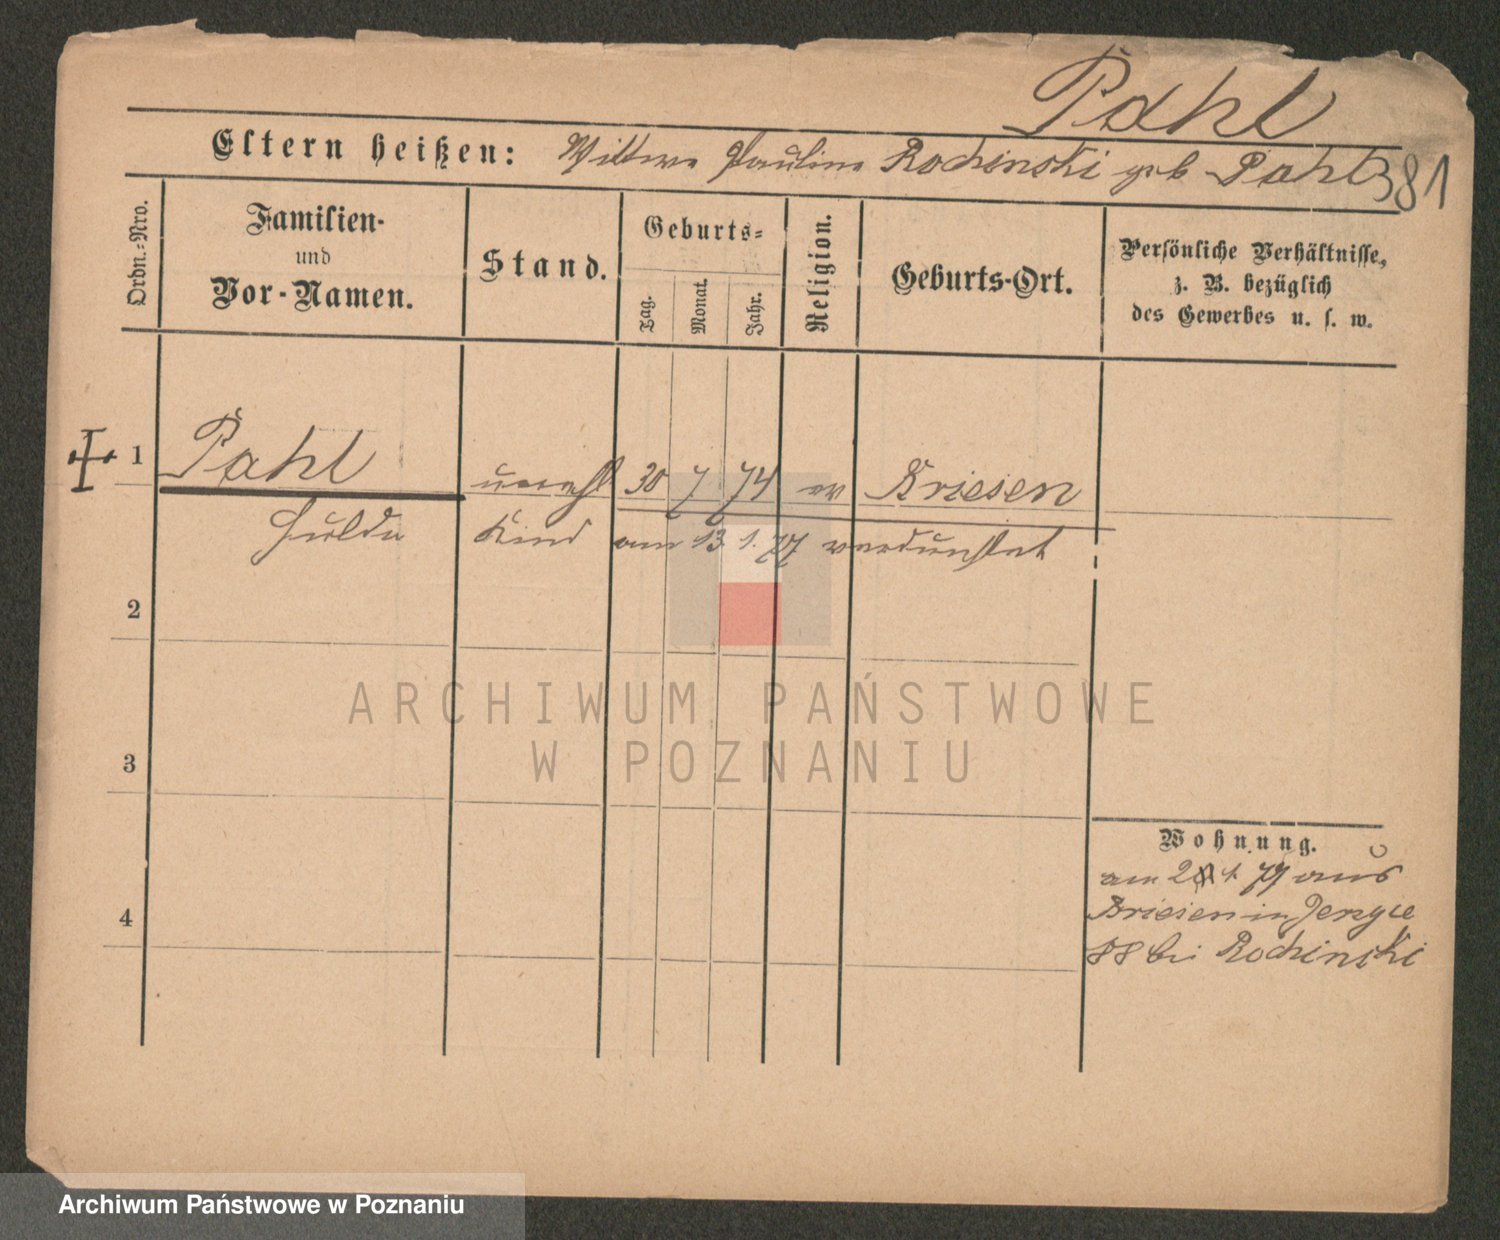 Pahl
Eltern heißen: Wittwe Pauline Rochinski geb Pahl 381
Ordn.=Nro.
Familien-
und
Vor-Namen.
Stand.
Geburts=
Tag.
Monat.
Jahr.
Religion.
Geburts-Ort.
Persönliche Verhältnisse,
z. B. bezüglich
des Gewerbes u. s. w.
1 Pahl unehl 30 7 74 ev Briesen
Hulda Kind am 13 1. 77
2
3
4
Wohnung.
am 1. 77 aus
Briesen in Jerzyce
88 bei Rochinski
ARCHIWUM PAŃSTWOWE
W POZNANIU
Archiwum Państwowe w Poznaniu